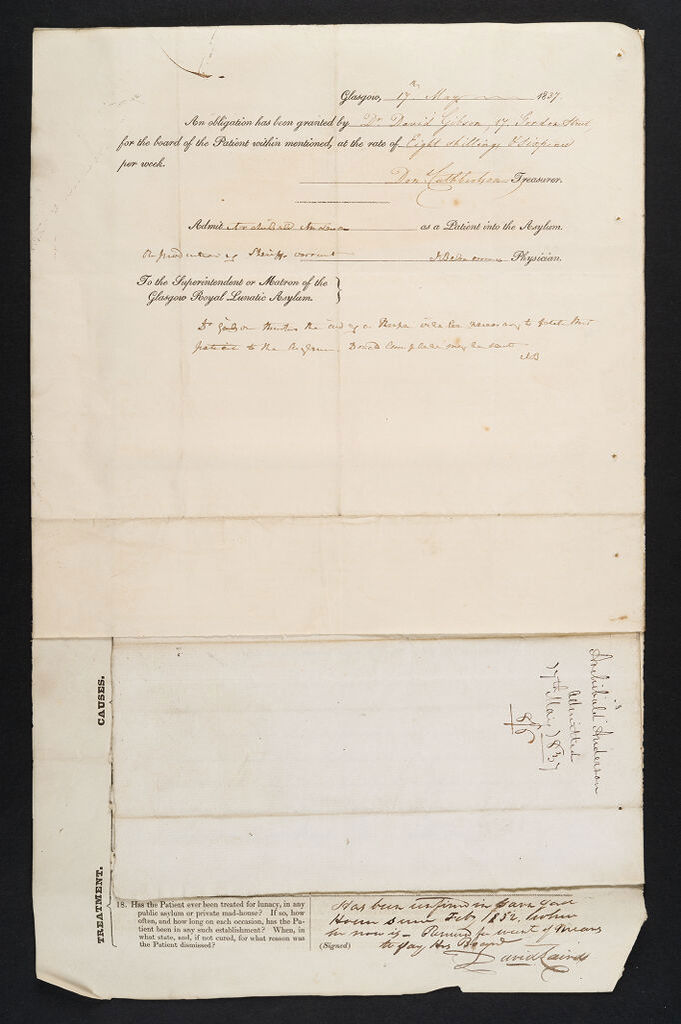 Glasgow, 17th May 1837
An obligation has been granted by Dr David Gibson, 17, Street
for the board of the Patient within mentioned, at the rate of Eight shillings & Sixpence
per week.
Treasurer.
Admit Archibald Anderson as a Patient into the Asylum.
On production of Sheriff's warrant Physician.
To the Superintendent or Matron of the
Glasgow Royal Lunatic Asylum.
Dr thinks the aid of a will be necessary to fetch this
patient to the Asylum. may be sent
Archibald Anderson
Admitted
17th May 1837
8/6
CAUSES.
TREATMENT.
18. Has the Patient ever been treated for lunacy, in any
public asylum or private mad-house? If so, how
often, and how long on each occasion, has the Pa-
tient been in any such establishment? When, in
what state, and, if not cured, for what reason was
the Patient dismissed?
Has been confined in
House since Feb 1832, where
he now is - for want of means
(Signed) to pay His Board
David